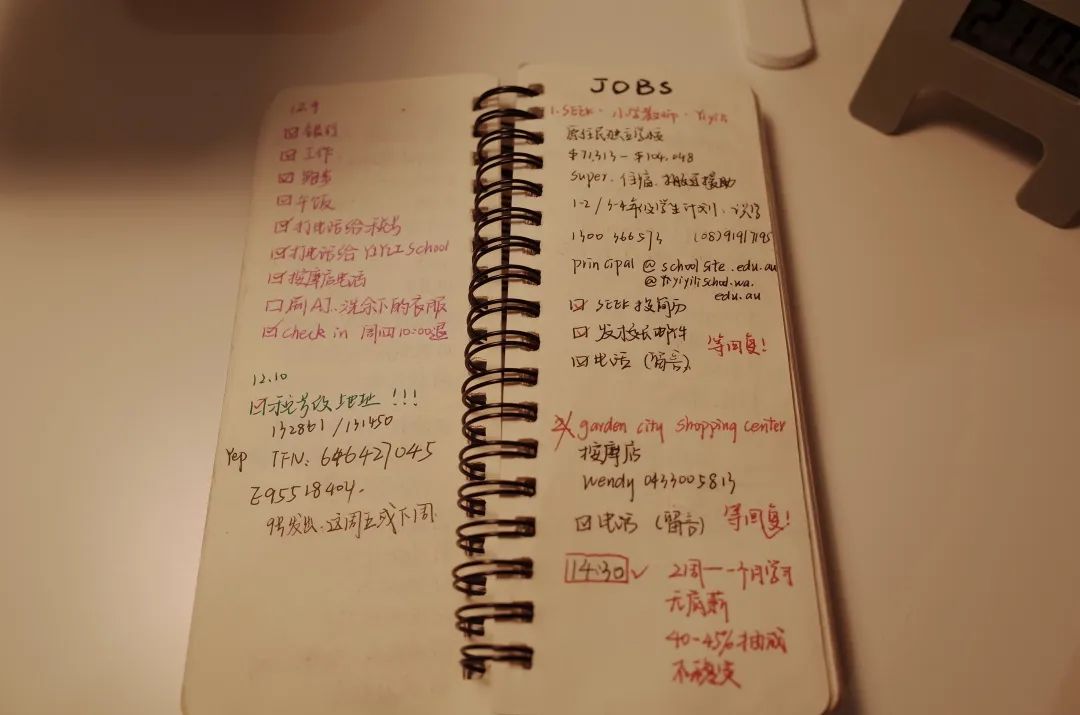 12.9
☑ 银行
☑ 工作
☑ 跑步
☑ 午饭
☑ 打电话给税号
☑ 打电话给 YIYILI School
☑ 按摩店电话
☐ 刷AJ、洗余下的衣服
☑ Check in 周四10:00退
12.10
☑ 税号改地址!!!
132861 / 131450
Yep TFN: 646427045
E95518404.
9号发出.这周五或下周.
JOBS
1. SEEK · 小学教师 · Yiyili
原住民独立学校
$71,313 - $104,048
super. 住宿. 搬迁援助
1-2 / 3-4年级学生计划.
1300 366573 (08)91917195
principal @ schoolsite.edu.au
@ yiyilischool.wa.
edu.au
☑ SEEK 投简历
☑ 发校长邮件 等回复!
☑ 电话 (留言)
2 garden city shopping center
按摩店
Wendy 0433005813
☑ 电话 (留言) 等回复!
14:30 ✓ 2周一一个月学习
无底薪
40-45%抽成
不稳定